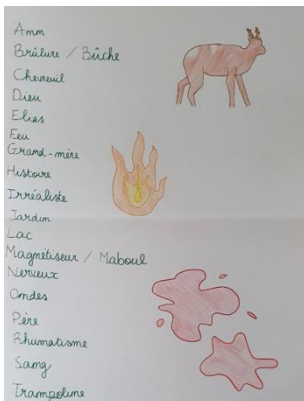 Amm
Brûlure / Bûche
Chevreuil
Dieu
Elias
Feu
Grand-mère
Histoire
Irréaliste
Jardin
Lac
Magnétiseur / Maboul
Nerveux
Ondes
Père
Rhumatisme
Sang
Trampoline